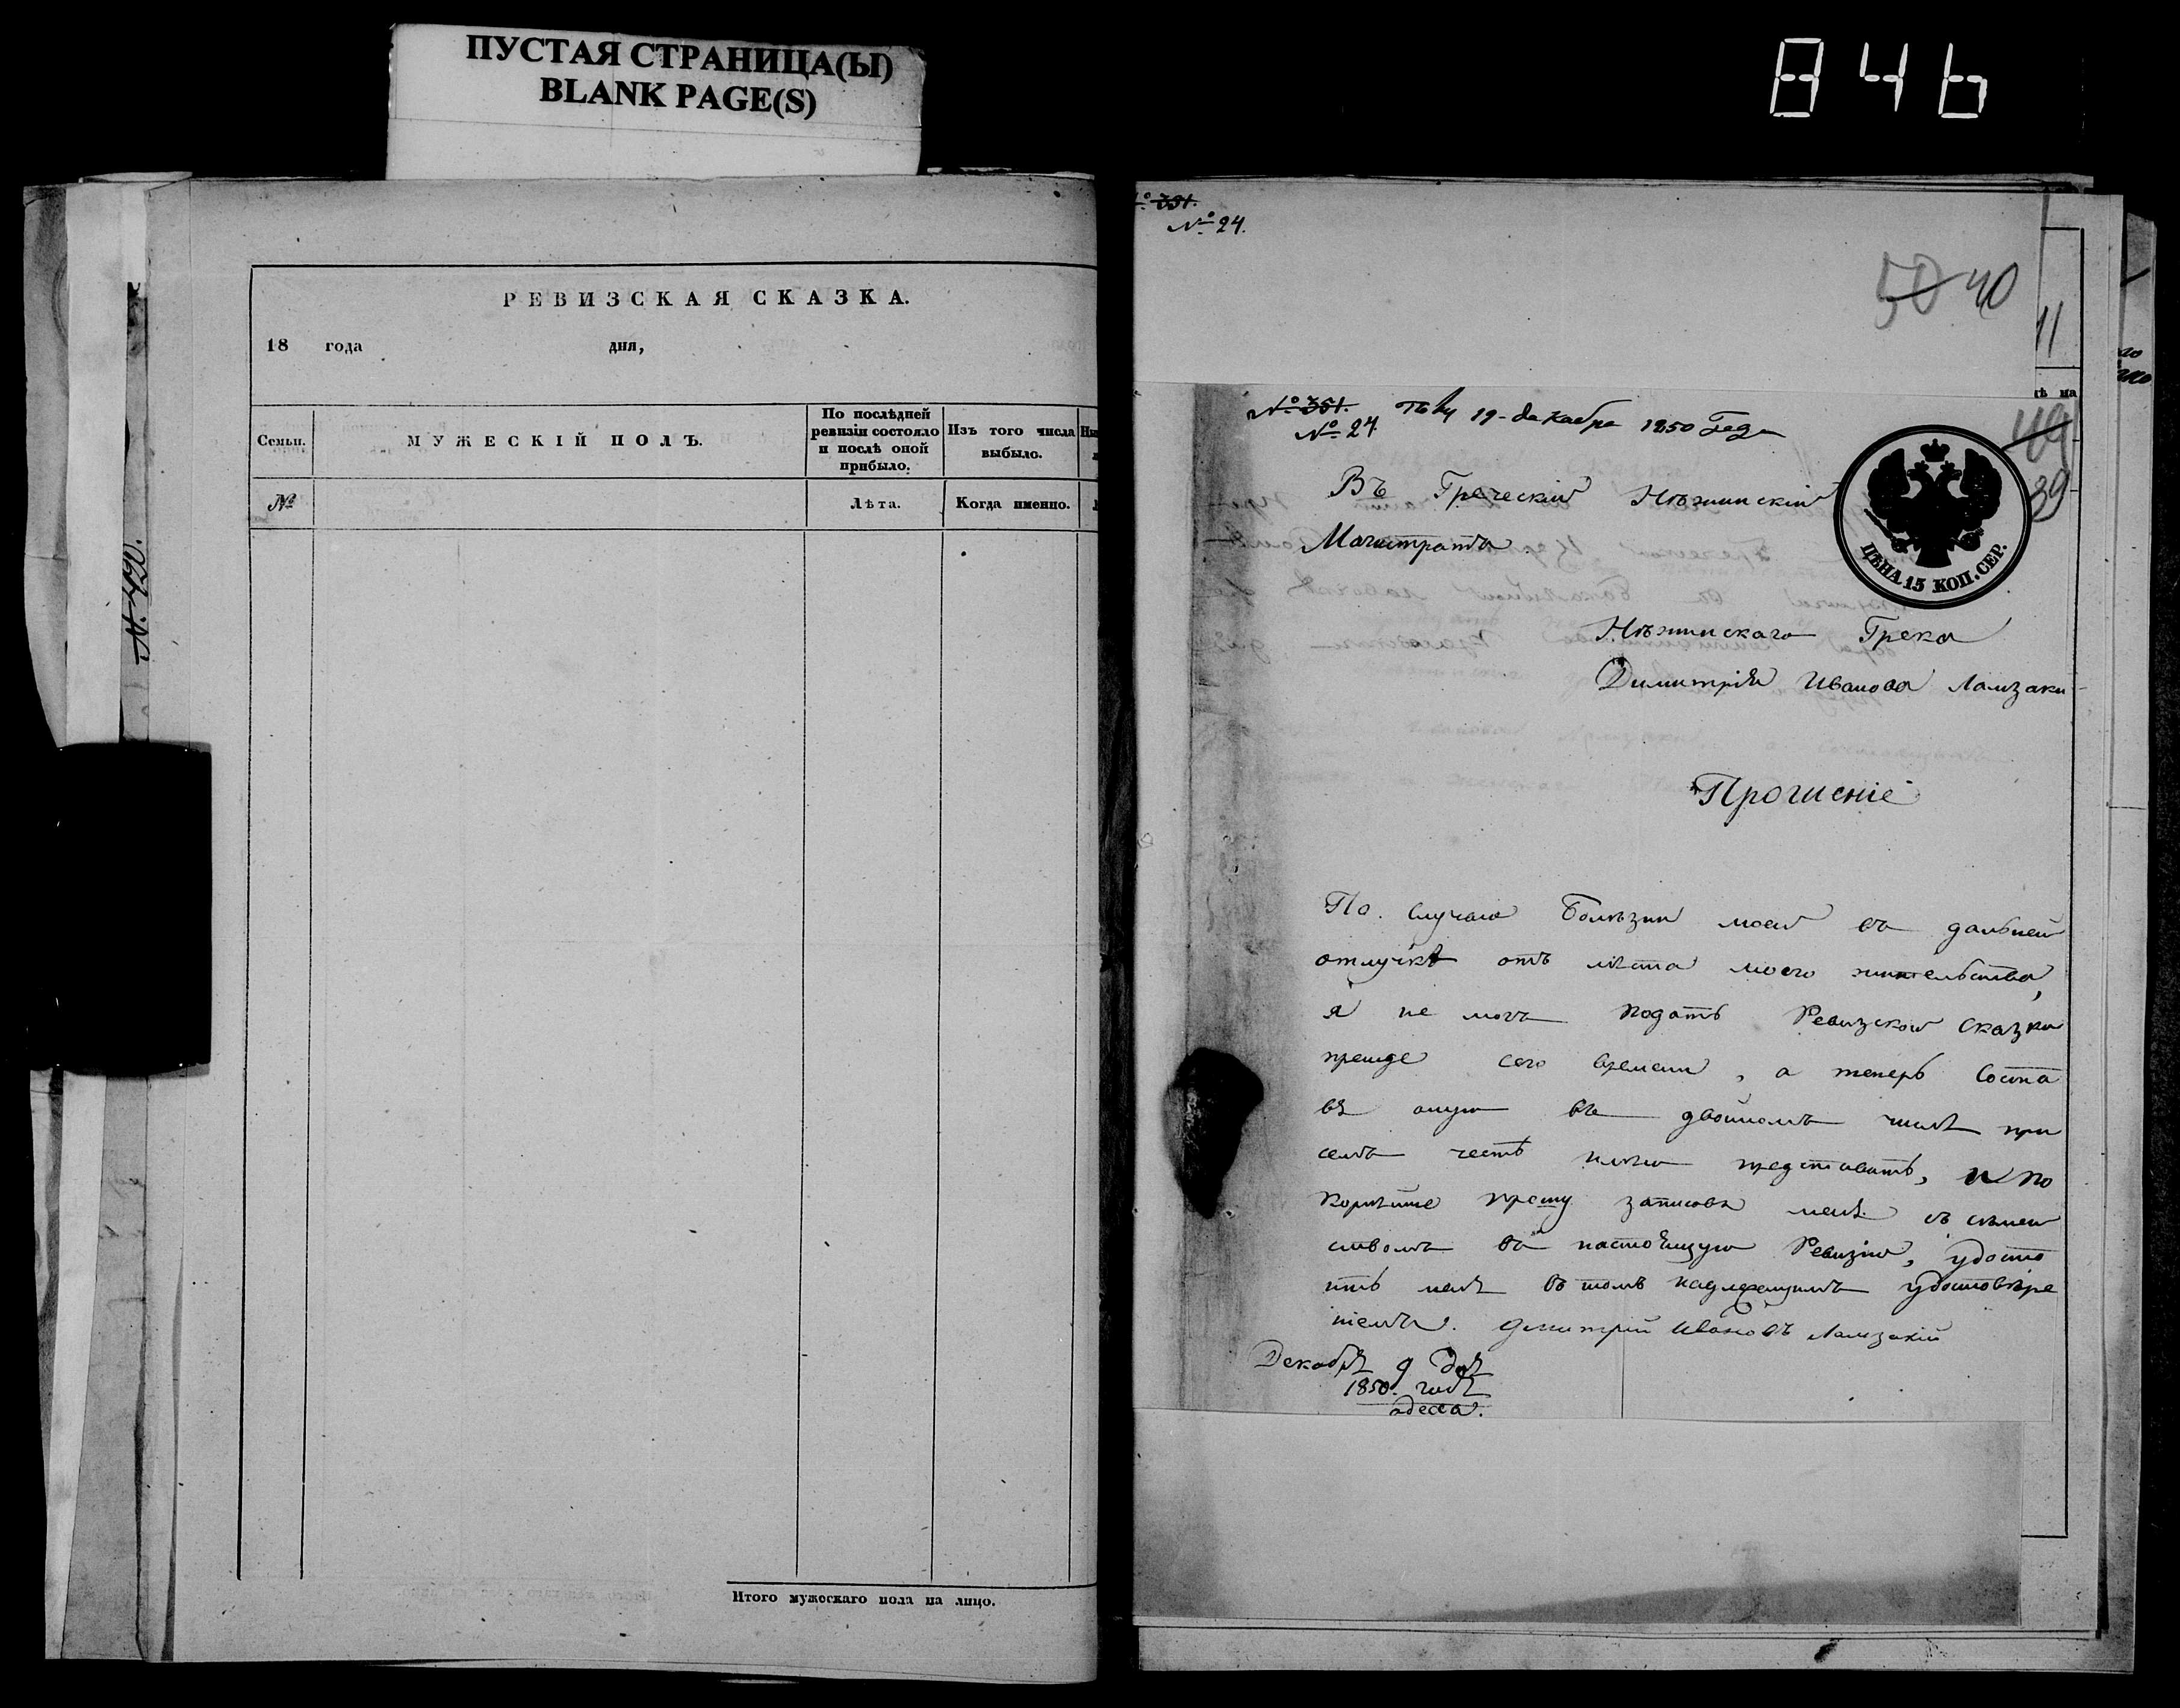 ПУСТАЯ СТРАНИЦА(Ы)
BLANK PAGE(S)
846
№ 420.
РЕВИЗСКАЯ СКАЗКА.
18 года дня,
Семьи.
МУЖЕСКІЙ ПОЛЪ.
По послѣдней
ревизіи состояло
и послѣ оной
прибыло.
Изъ того числа
выбыло.
№
Лѣта.
Когда именно.
Итого мужескаго пола на лицо.
№ 351.
№ 24.
50 40
11
39
№ 351.
№ 24.
19 декабря 1850 Года
Въ Греческій Нѣжинскій
Магистратъ
ЦѢНА 15 КОП. СЕР.
Нѣжинскаго Грека
Димитрія Иванова Ламзаки
Прошеніе
По случаю Болѣзни моей въ дальней
отлучкѣ отъ мѣста моего жительства,
я не могъ подать Ревизской сказки
прежде сего времени, а теперь Соста
вя оную въ двойномъ числѣ при
семъ честь имѣю представить, и по
корнѣйше прошу записовъ меня съ сѣмей
ствомъ въ настоящую Ревизію, удосто
ить меня въ томъ надлежащимъ удостовѣре
ніемъ. Дмитрій Ивановъ Ламзакій
Декабря 9 дня
1850. года
Одесса.